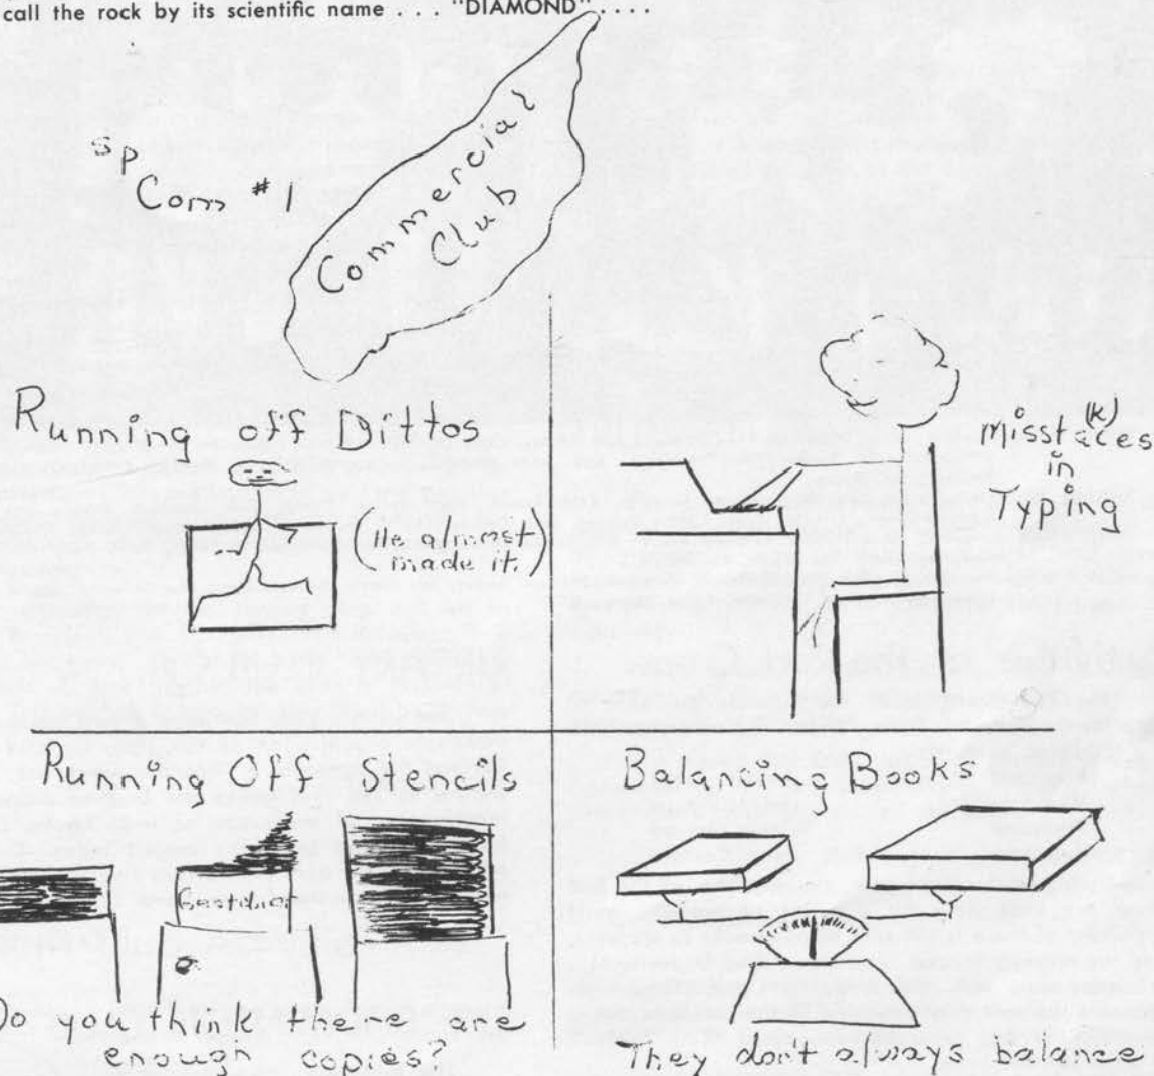 call the rock by its scientific name . . . "DIAMOND" . . . .
Commercial
Club
SP
Com #1
Running off Dittos
(He almost
made it.)
(k)
Misstaces
in
Typing
Running Off Stencils
Do you think there are
enough copies?
Balancing Books
They don't always balance